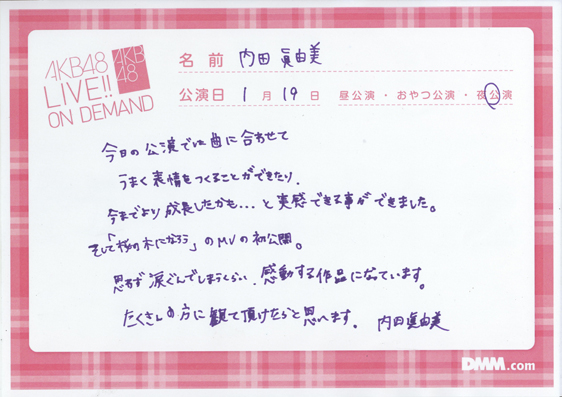 AKB48
LIVE!!
ON DEMAND
AKB
48
名前 内田 眞由美
公演日 1月19日 昼公演・おやつ公演・夜公演
今日の公演では曲に合わせて
うまく表情をつくることができたり、
今までより成長したかも...と実感できる事ができました。
そして「桜の木になろう」のMVの初公開。
思わず涙ぐんでしまうくらい、感動する作品になっています。
たくさんの方に観て頂けたらと思います。 内田眞由美
DMM.com